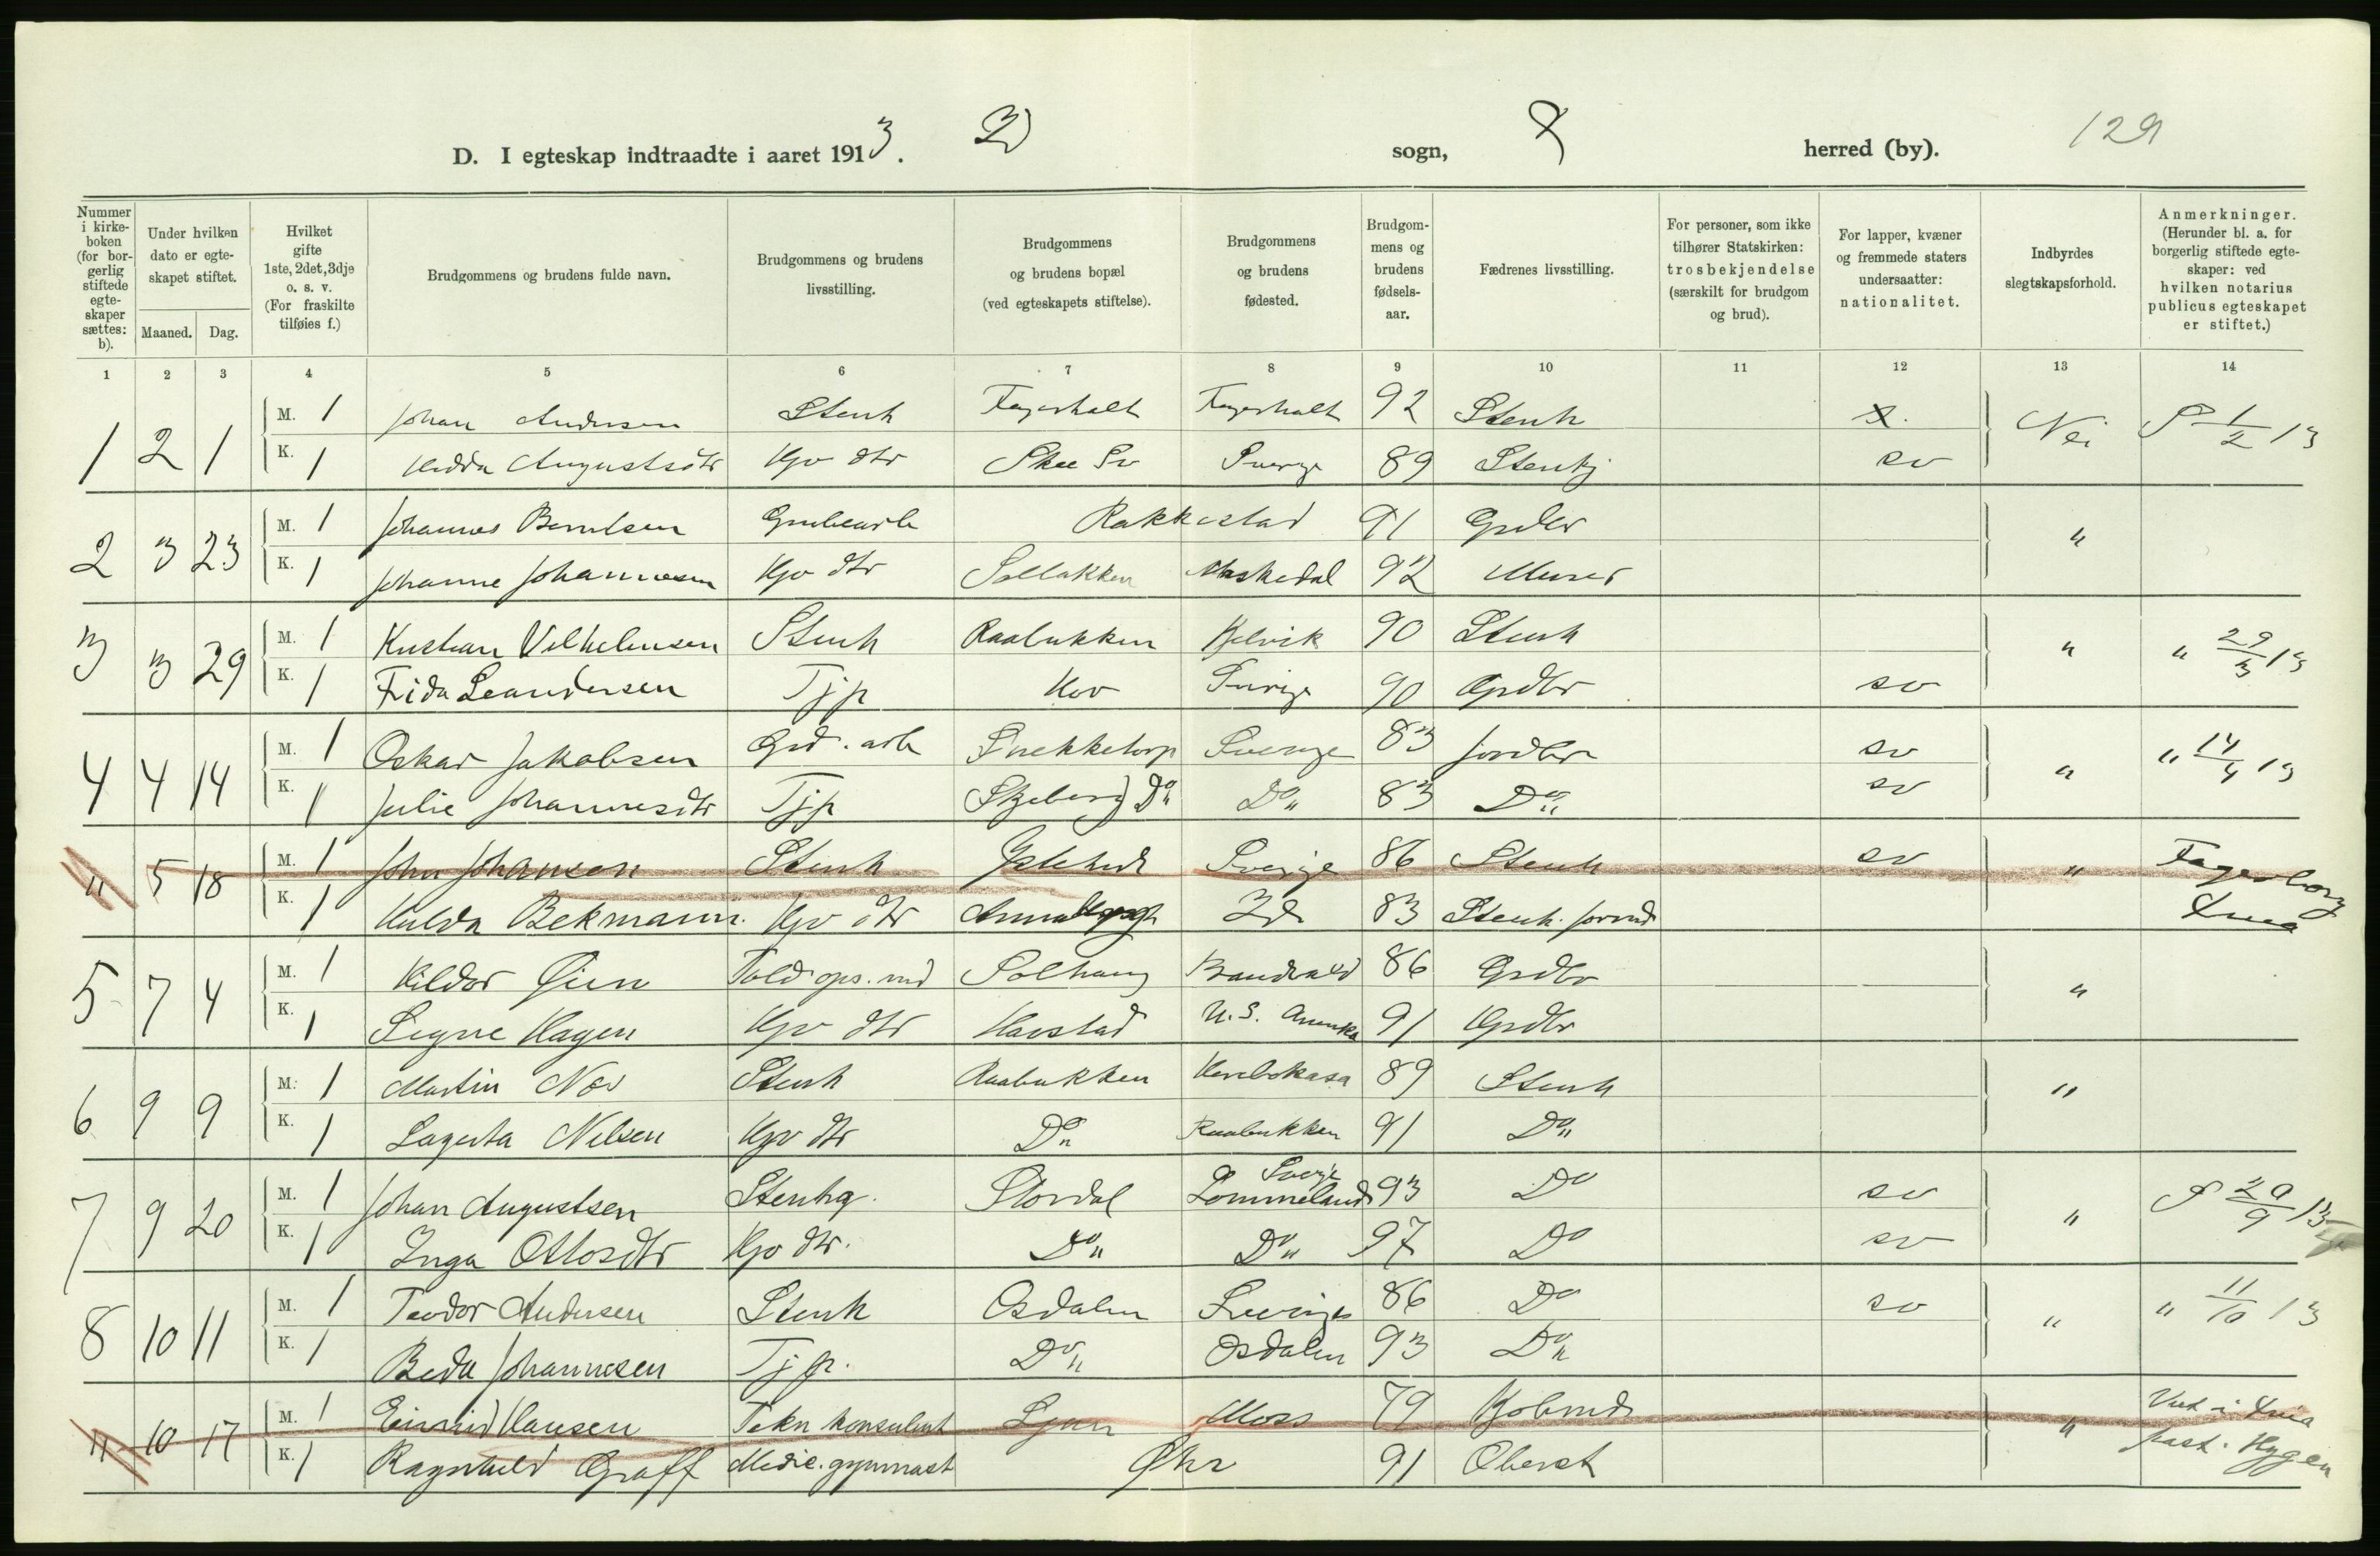 D. I egteskap indtraadte i aaret 1913. sogn, herred (by). 129
Nummer i kirkeboken (for borgerlig stiftede egteskaper sættes: b).
Under hvilken dato er egteskapet stiftet.
Maaned. Dag.
Hvilket gifte 1ste, 2det, 3dje o. s. v. (For fraskilte tilføies f.)
Brudgommens og brudens fulde navn.
Brudgommens og brudens livsstilling.
Brudgommens og brudens bopæl (ved egteskapets stiftelse).
Brudgommens og brudens fødested.
Brudgommens og brudens fødselsaar.
Fædrenes livsstilling.
For personer, som ikke tilhører Statskirken: trosbekjendelse (særskilt for brudgom og brud).
For lapper, kvæner og fremmede staters undersaatter: nationalitet.
Indbyrdes slegtskapsforhold.
Anmerkninger. (Herunder bl. a. for borgerlig stiftede egteskaper: ved hvilken notarius publicus egteskapet er stiftet.)
1 2 3 4 5 6 7 8 9 10 11 12 13 14
1 2 1 M. 1 Johan Andersen Stenh Fagerholt Fagerholt 92 Stenh Nei 1/2 13
K. 1 Hedda Augustsdtr Hjv dtr Skee Sv Sverge 89 Stenhj sv
2 3 23 M. 1 Johannes Berntsen Grubearb Rakkestad 91 Grdbr "
K. 1 Johanne Johannesen Hjv dtr 92 Murer
3 3 29 M. 1 Kristian Vilhelmsen Stenh Raabukken Kjelvik 90 Stenh " " 29/3 13
K. 1 Frida Leandersen Tjp Hov Sverige 90 Grdbr sv
4 4 14 M. 1 Oskar Jakobsen Grd. arb Snekketorp Sverige 83 Jordbr sv " " 14/4 13
K. 1 Julie Johannesdtr Tjp Skjeberg Do " Do " 83 Do " sv
" 5 18 M. 1 John Johansen Stenh Sverige 86 Stenh sv " Fagerborg
K. 1 Hulda Bekmann. Hjv dtr Idd 83 Stenh. formd Kria
5 7 4 M. 1 Hildor Øien Told ops. md Solhaug Brandvald 86 Grdbr "
K. 1 Signe Hagen Hjv dtr Havstad U. S. Amerika 91 Grdbr
6 9 9 M. 1 Martin Nes Stenh Raabukken 89 Stenh "
K. 1 Lagerta Nilsen Hjv dtr Do " Raabukken 91 Do "
7 9 20 M. 1 Johan Augustsen Stenhg. Stordal Lommeland Sverje 93 Do sv " 20/9 13
K. 1 Inga Ottosdtr Hjv dtr. Do " Do " 97 Do sv
8 10 11 M. 1 Teodor Andersen Stenh Osdalen Sverige 86 Do sv " " 11/10 13
K. 1 Beda Johannesen Tjp. Do " Osdalen 93 Do "
" 10 17 M. 1 Einrid Hansen Tekn konsulent Ljan Moss 79 Kjøbmd " Viet i Kria
K. 1 Ragnhild Graff Medic. gymnast 91 Oberst past. Hyggen